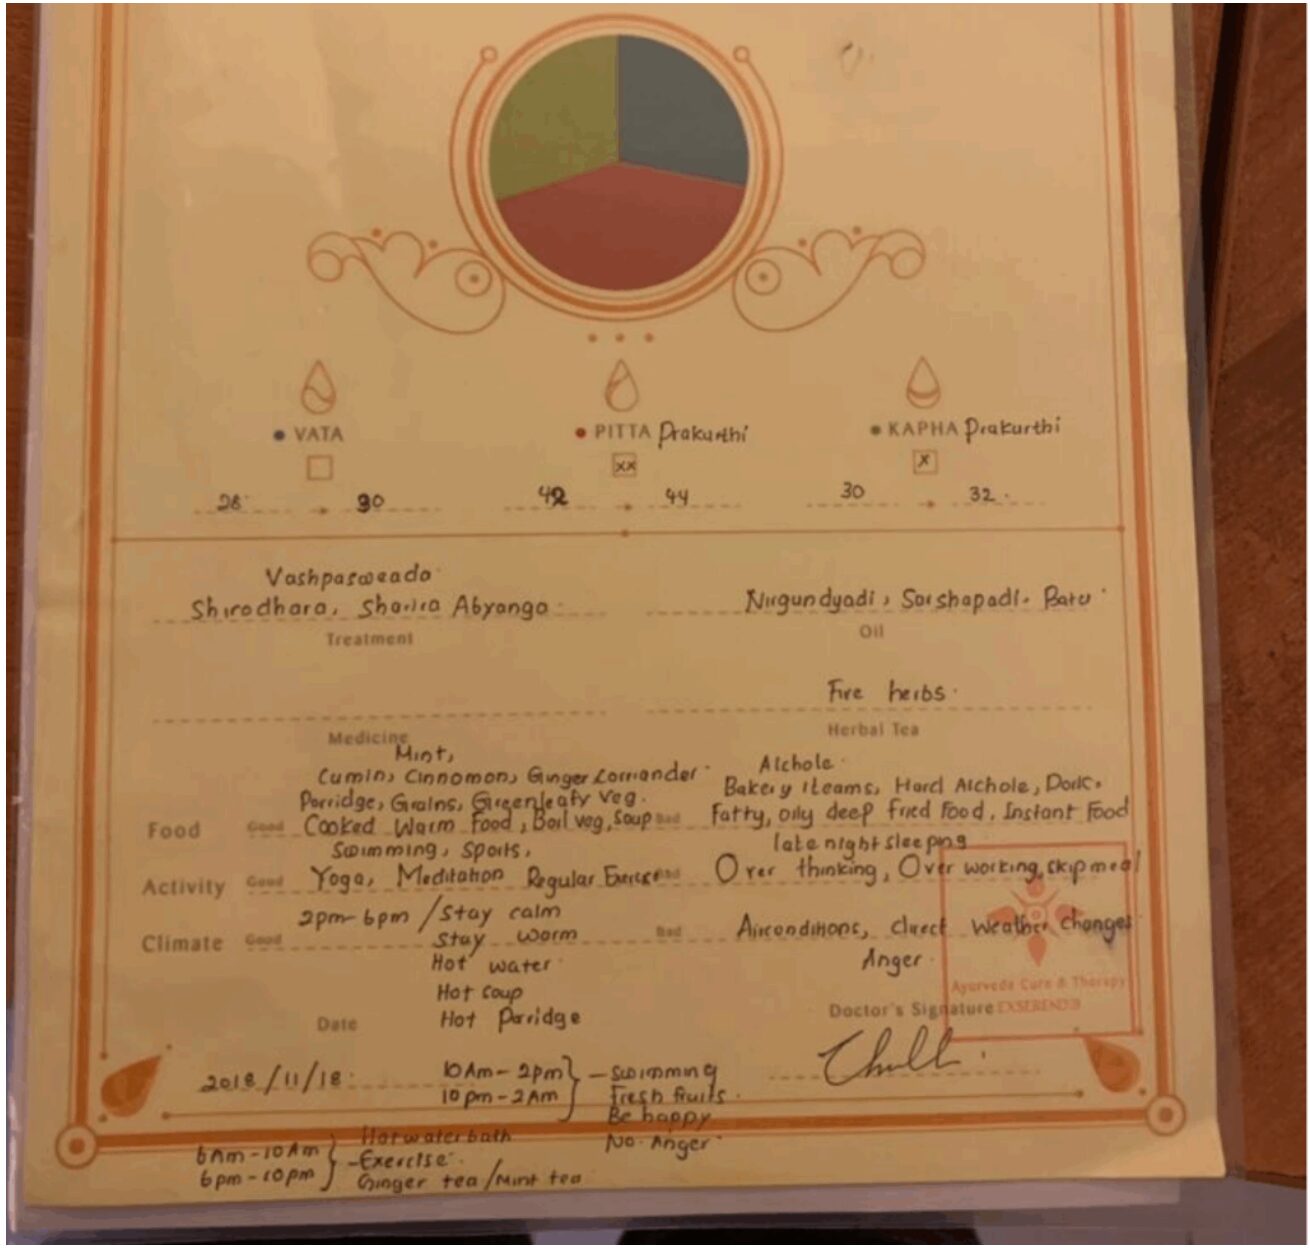 VATA
PITTA Prakurthi
KAPHA Prakurthi
xx
x
28 30
42 44
30 32
Vashpasweada
Shirodhara, Sharira Abyanga
Treatment
Nirgundyadi, Sarshapadi. Batu
Oil
Fire herbs
Herbal Tea
Medicine
Mint,
Cumin, Cinnomon, Ginger Corriander
Porridge, Grains, Greenleafy Veg.
Food Good Cooked Warm Food, Boil veg, Soup
Alchole
Bakery Iteams, Hard Alchole, Dork,
Bad Fatty, oily deep fried Food, Instant Food
Swimming, Sports,
Activity Good Yoga, Meditation Regular Exercise
late night sleeping
Bad Over thinking, Over working, skip meal
Climate Good 2pm-6pm / Stay calm
Stay worm
Hot water
Hot soup
Hot Porridge
Bad Airconditions, direct weather changes
Anger
Ayurveda Cure & Therapy
EXSERENDIB
Doctor's Signature
Date
2018/11/18
10Am-2pm
10pm-2Am
- Swimming
Fresh fruits
Be happy
No Anger
6Am-10Am
6pm-10pm
Hot water bath
- Exercise
Ginger tea/Mint tea